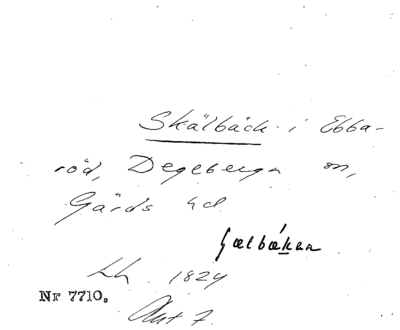 Skälbäck i Ebba-
röd, Degeberga sn,
Gärds hd
Lh. 1824
Nr 7710.
Akt 7.